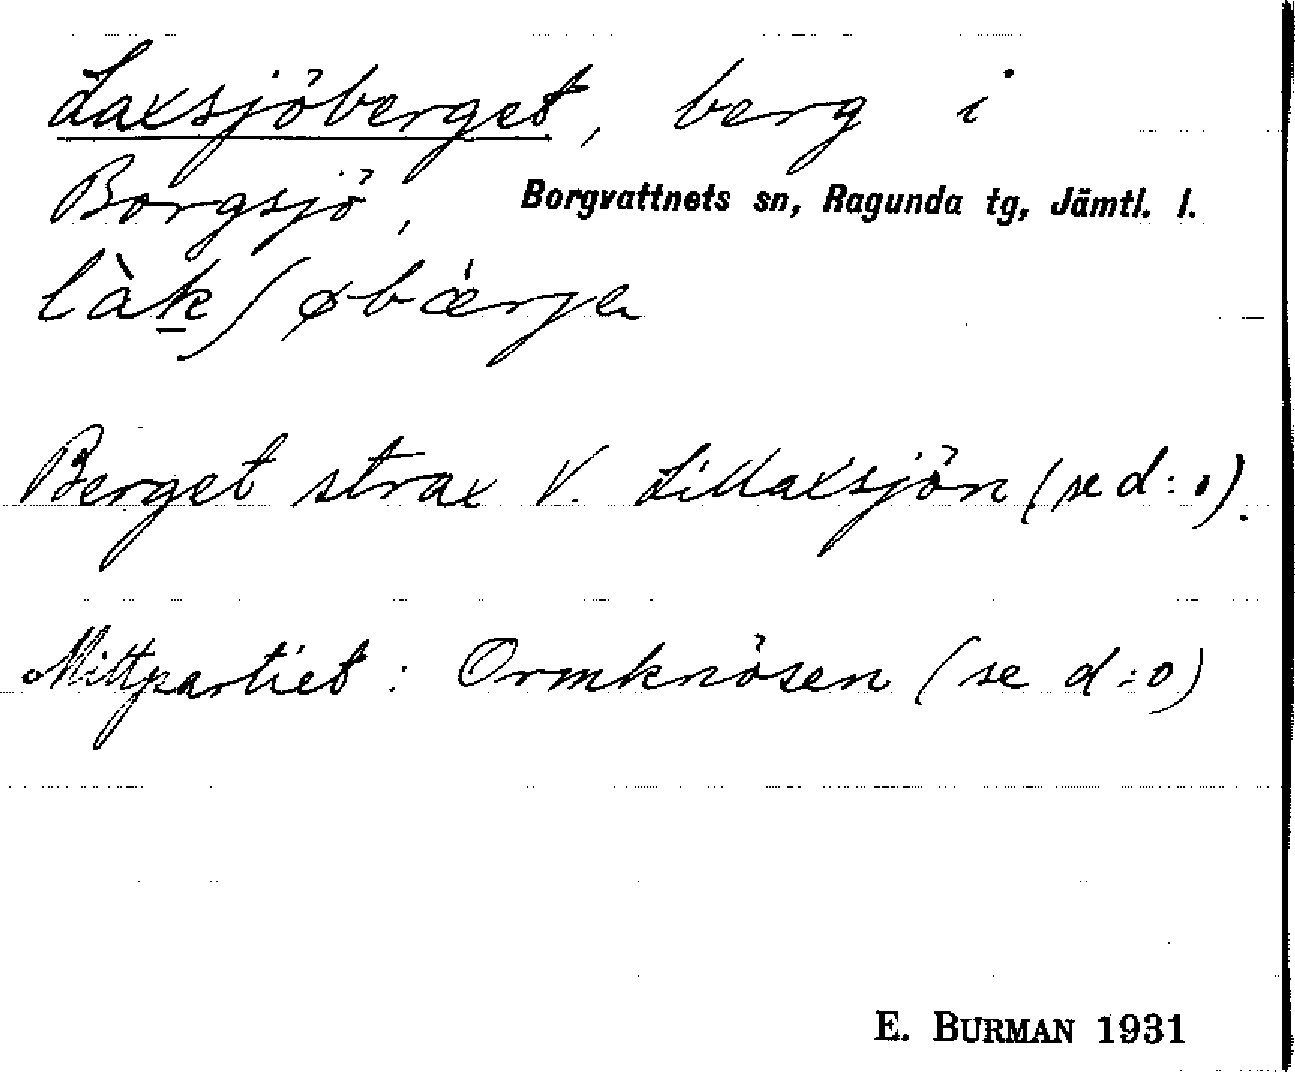 Laxsjöberget, berg i
Borgsjö, Borgvattnets sn, Ragunda tg, Jämtl. l.
làkʃøbǽrjen
Berget strax V. Lillaxsjön (se d:o).
Mittpartiet: Ormknösen (se d:o)
E. BURMAN 1931